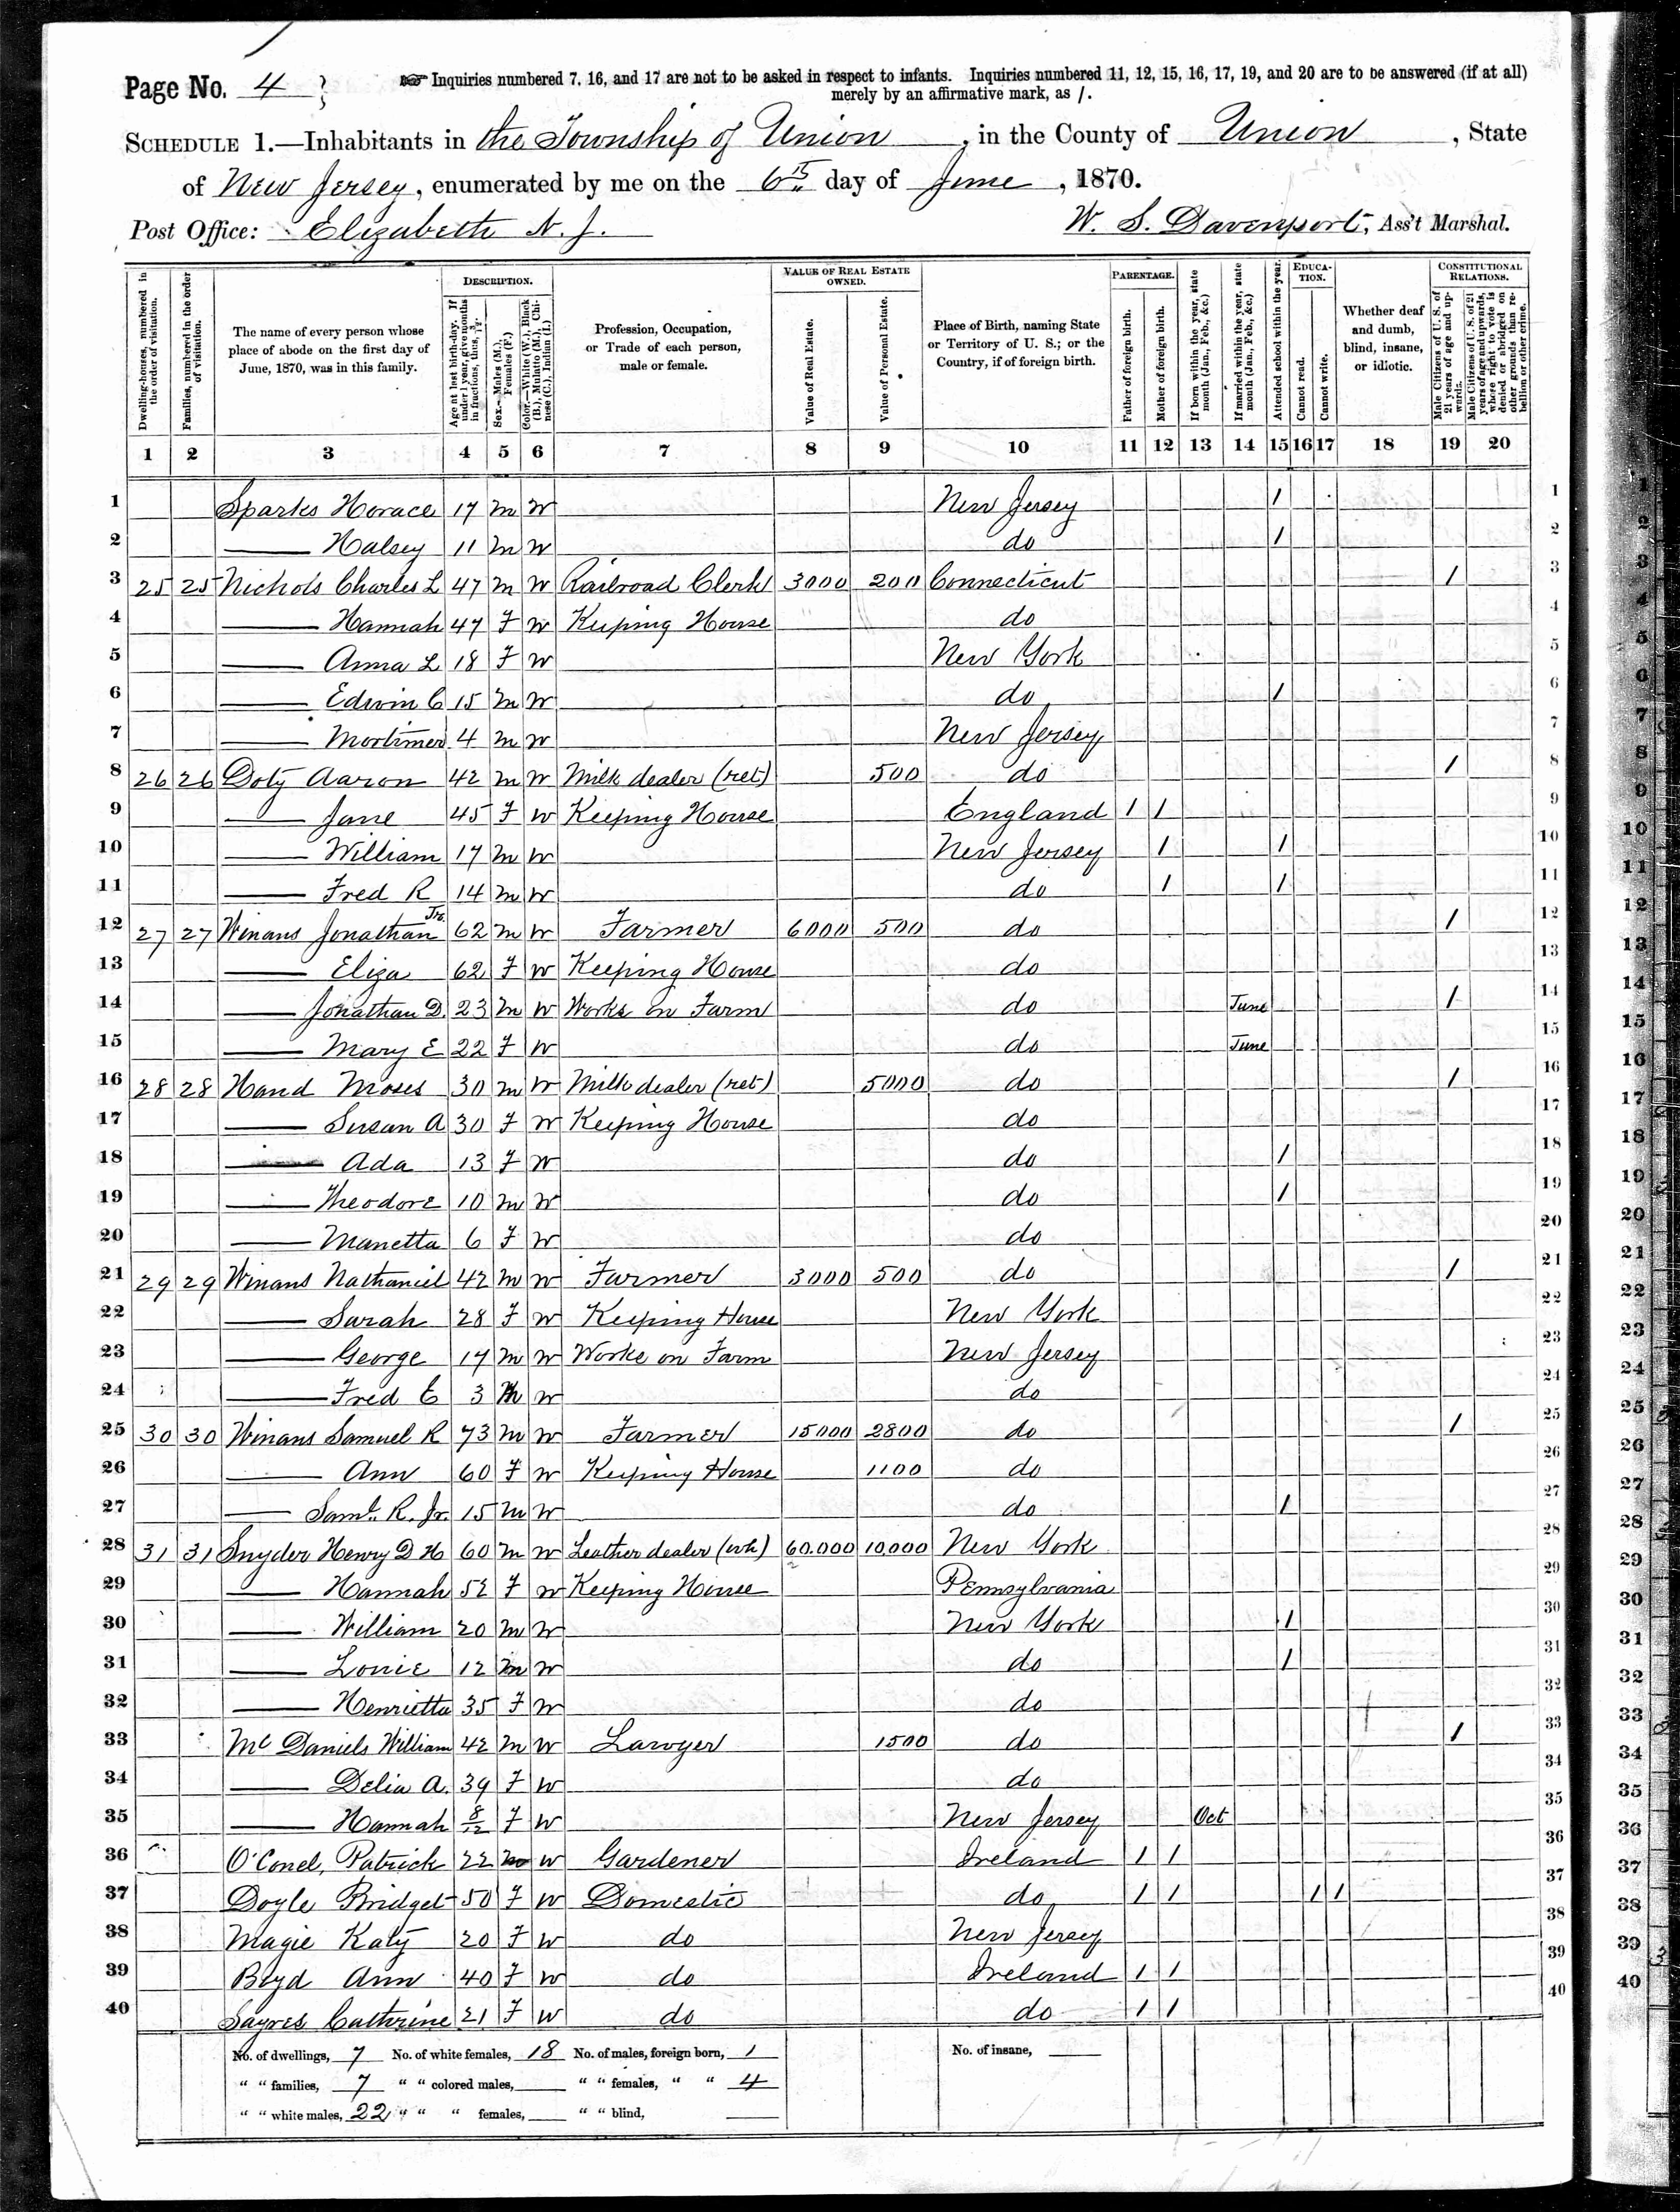 Page No. 4
Inquiries numbered 7, 16, and 17 are not to be asked in respect to infants. Inquiries numbered 11, 12, 15, 16, 17, 19, and 20 are to be answered (if at all)
merely by an affirmative mark, as /.
SCHEDULE 1.—Inhabitants in the Township of Union, in the County of Union, State
of New Jersey, enumerated by me on the 6th day of June, 1870.
Post Office: Elizabeth N. J. W. S. Davenport, Ass't Marshal.
Dwelling-houses, numbered in the order of visitation.
Families, numbered in the order of visitation.
The name of every person whose place of abode on the first day of June, 1870, was in this family.
DESCRIPTION.
Age at last birth-day. If under 1 year, give months in fractions, thus, 3/12.
Sex.—Males (M.), Females (F.)
Color.—White (W.), Black (B.), Mulatto (M.), Chinese (C.), Indian (I.)
Profession, Occupation, or Trade of each person, male or female.
VALUE OF REAL ESTATE OWNED.
Value of Real Estate.
Value of Personal Estate.
Place of Birth, naming State or Territory of U. S.; or the Country, if of foreign birth.
PARENTAGE.
Father of foreign birth.
Mother of foreign birth.
If born within the year, state month (Jan., Feb., &c.)
If married within the year, state month (Jan., Feb., &c.)
EDUCATION.
Attended school within the year.
Cannot read.
Cannot write.
Whether deaf and dumb, blind, insane, or idiotic.
CONSTITUTIONAL RELATIONS.
Male Citizens of U. S. of 21 years of age and upwards.
Male Citizens of U. S. of 21 years of age and upwards, where right to vote is denied or abridged on other grounds than rebellion or other crime.
1 2 3 4 5 6 7 8 9 10 11 12 13 14 15 16 17 18 19 20
1 Sparks Horace 17 M W New Jersey / 1
2 —— Halsey 11 M W do / 2
3 25 25 Nichols Charles L 47 M W Railroad Clerk 3000 200 Connecticut / 3
4 —— Hannah 47 F W Keeping House do 4
5 —— Anna L 18 F W New York 5
6 —— Edwin C 15 M W do / 6
7 —— Mortimer 4 M W New Jersey 7
8 26 26 Doty Aaron 42 M W Milk dealer (ret) 500 do / 8
9 —— Jane 45 F W Keeping House England / / 9
10 —— William 17 M W New Jersey / / 10
11 —— Fred R 14 M W do / / 11
12 27 27 Winans Jonathan Jr. 62 M W Farmer 6000 500 do / 12
13 —— Eliza 62 F W Keeping House do 13
14 —— Jonathan D. 23 M W Works on Farm do June / 14
15 —— Mary E 22 F W do June 15
16 28 28 Hand Moses 30 M W Milk dealer (ret) 5000 do / 16
17 —— Susan A 30 F W Keeping House do 17
18 —— Ada 13 F W do / 18
19 —— Theodore 10 M W do / 19
20 —— Manetta 6 F W do 20
21 29 29 Winans Nathaniel 42 M W Farmer 3000 500 do / 21
22 —— Sarah 28 F W Keeping House New York 22
23 —— George 17 M W Works on Farm New Jersey 23
24 —— Fred E 3 M W do 24
25 30 30 Winans Samuel R 73 M W Farmer 15000 2800 do / 25
26 —— Ann 60 F W Keeping House 1100 do 26
27 —— Saml. R. Jr. 15 M W do / 27
28 31 31 Snyder Henry D H 60 M W Leather dealer (wh) 60.000 10,000 New York 28
29 —— Hannah 52 F W Keeping House Pennsylvania 29
30 —— William 20 M W New York / 30
31 —— Louie 12 M W do / 31
32 —— Henrietta 35 F W do 32
33 Mc Daniels William 42 M W Lawyer 1500 do / 33
34 —— Delia A. 39 F W do 34
35 —— Hannah 8/12 F W New Jersey Oct 35
36 O'Conel, Patrick 22 M W Gardener Ireland / / 36
37 Doyle Bridget 50 F W Domestic do / / / / 37
38 Magie Katy 20 F W do New Jersey 38
39 Boyd Ann 40 F W do Ireland / / 39
40 Sayres Cathrine 21 F W do do / / 40
No. of dwellings, 7 No. of white females, 18 No. of males, foreign born, 1 No. of insane,
" " families, 7 " " colored males, " " females, " " 4
" " white males, 22 " " " females, " " blind,